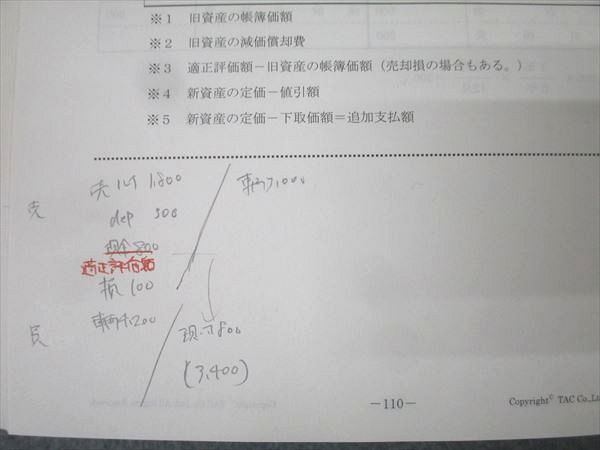 ※1 旧資産の帳簿価額
※2 旧資産の減価償却費
※3 適正評価額－旧資産の帳簿価額（売却損の場合もある。）
※4 新資産の定価－値引額
※5 新資産の定価－下取価額＝追加支払額
売 ルイ 1,800
dep 300
現金 800
適正評価額
損 100
車両 4,200
車両 3,000
売
買
現 800
(3,400)
－110－
Copyright© TAC Co.,Lt